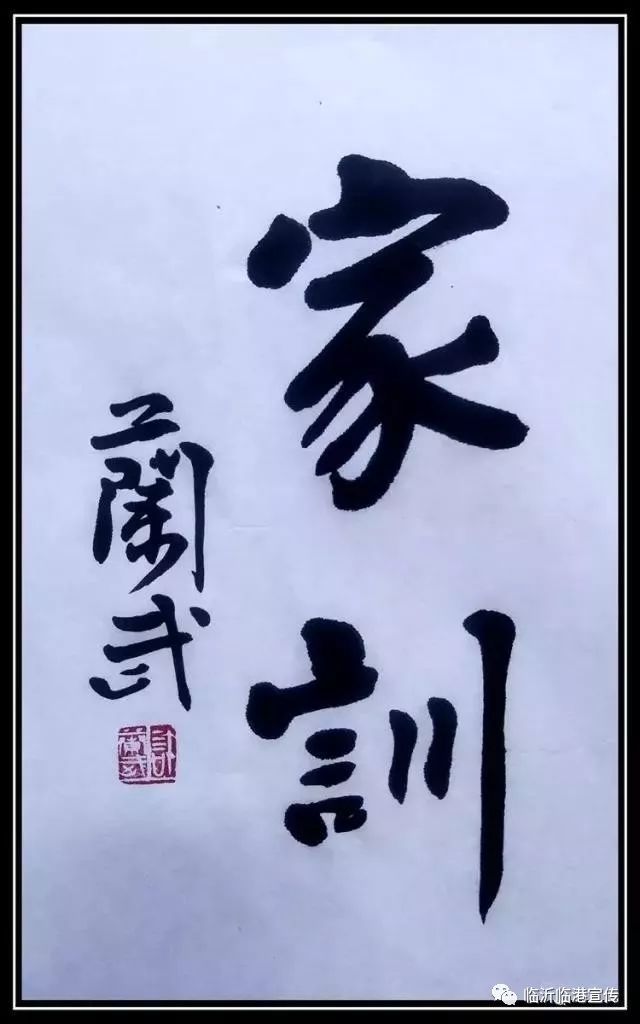 家訓
蘭武
临沂临港宣传